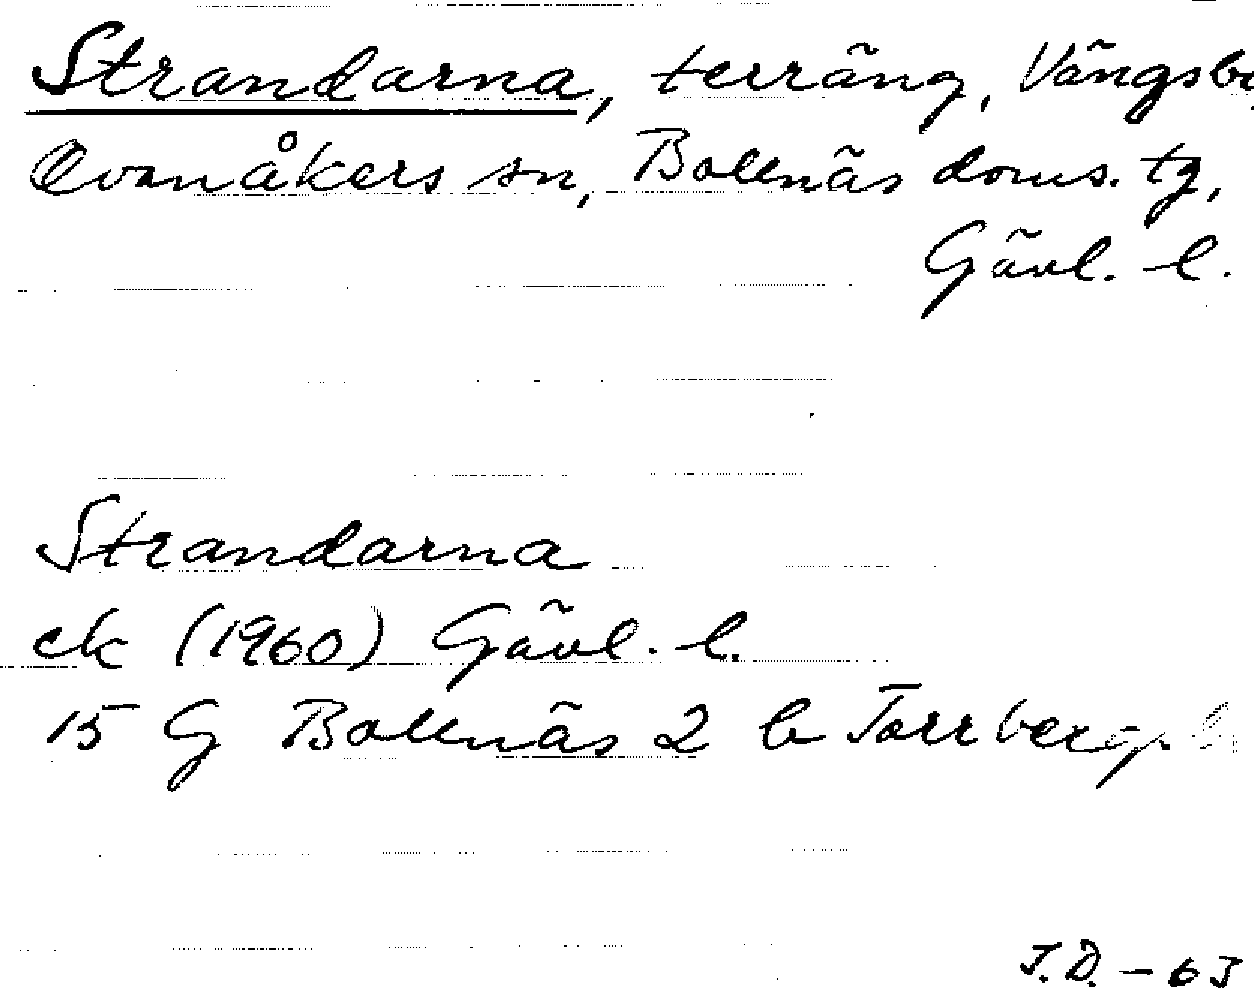 Strandarna, terräng, Vängsbo,
Ovanåkers sn, Bollnäs doms. tg,
Gävl. l.
Strandarna
ek (1960) Gävl. l.
15 G Bollnäs 2 b Torrberg
J.D. - 63